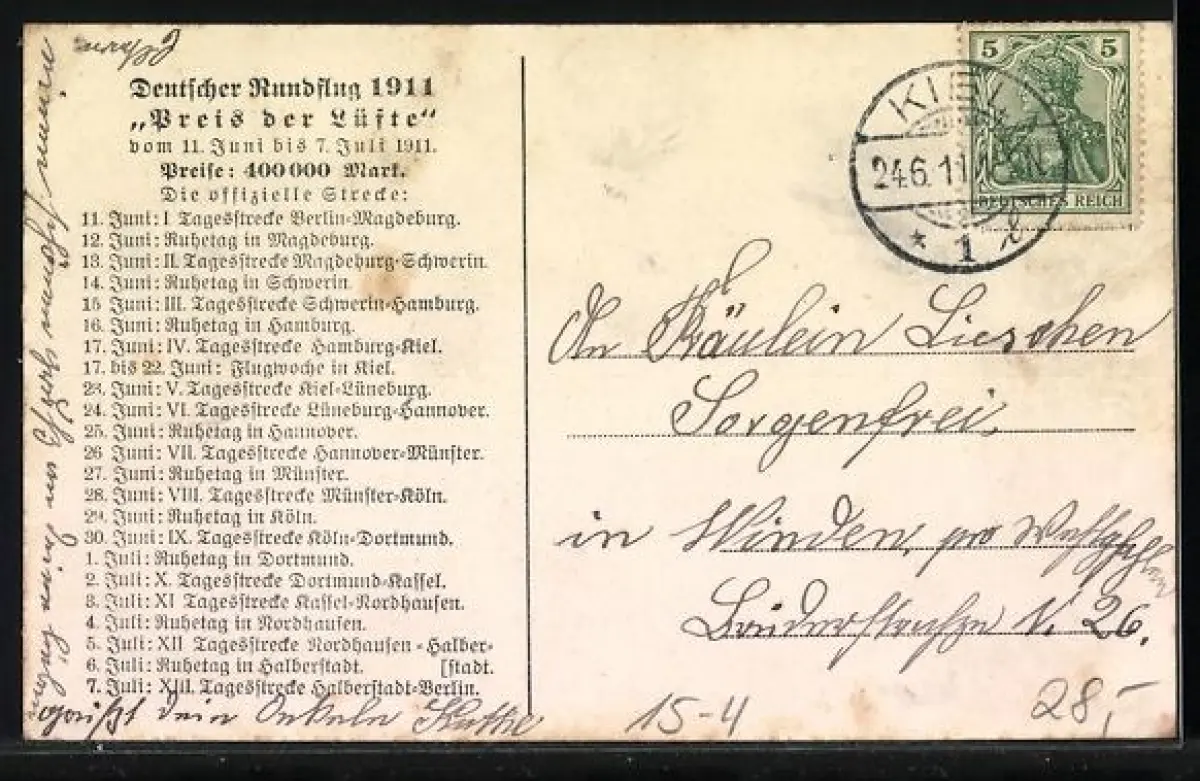 Deutscher Rundflug 1911
„Preis der Lüfte“
vom 11. Juni bis 7. Juli 1911.
Preise: 400 000 Mark.
Die offizielle Strecke:
11. Juni: I Tagesstrecke Berlin-Magdeburg.
12. Juni: Ruhetag in Magdeburg.
13. Juni: II. Tagesstrecke Magdeburg-Schwerin.
14. Juni: Ruhetag in Schwerin.
15 Juni: III. Tagesstrecke Schwerin-Hamburg.
16. Juni: Ruhetag in Hamburg.
17. Juni: IV. Tagesstrecke Hamburg-Kiel.
17. bis 22. Juni: Flugwoche in Kiel.
23. Juni: V. Tagesstrecke Kiel-Lüneburg.
24. Juni: VI. Tagesstrecke Lüneburg-Hannover.
25. Juni: Ruhetag in Hannover.
26 Juni: VII. Tagesstrecke Hannover-Münster.
27. Juni: Ruhetag in Münster.
28. Juni: VIII. Tagesstrecke Münster-Köln.
29. Juni: Ruhetag in Köln.
30. Juni: IX. Tagesstrecke Köln-Dortmund.
1. Juli: Ruhetag in Dortmund.
2. Juli: X. Tagesstrecke Dortmund-Kassel.
3. Juli: XI Tagesstrecke Kassel-Nordhausen.
4. Juli: Ruhetag in Nordhausen.
5. Juli: XII Tagesstrecke Nordhausen-Halber-
6. Juli: Ruhetag in Halberstadt. [stadt.
7. Juli: XIII. Tagesstrecke Halberstadt-Berlin.
grüßt dein Onkel
5 5
DEUTSCHES REICH
KIEL
24.6.11
* 1 b
An Fräulein Lieschen
Sorgenfrei
in Winden, pro
N. 26.
15-4
28,-